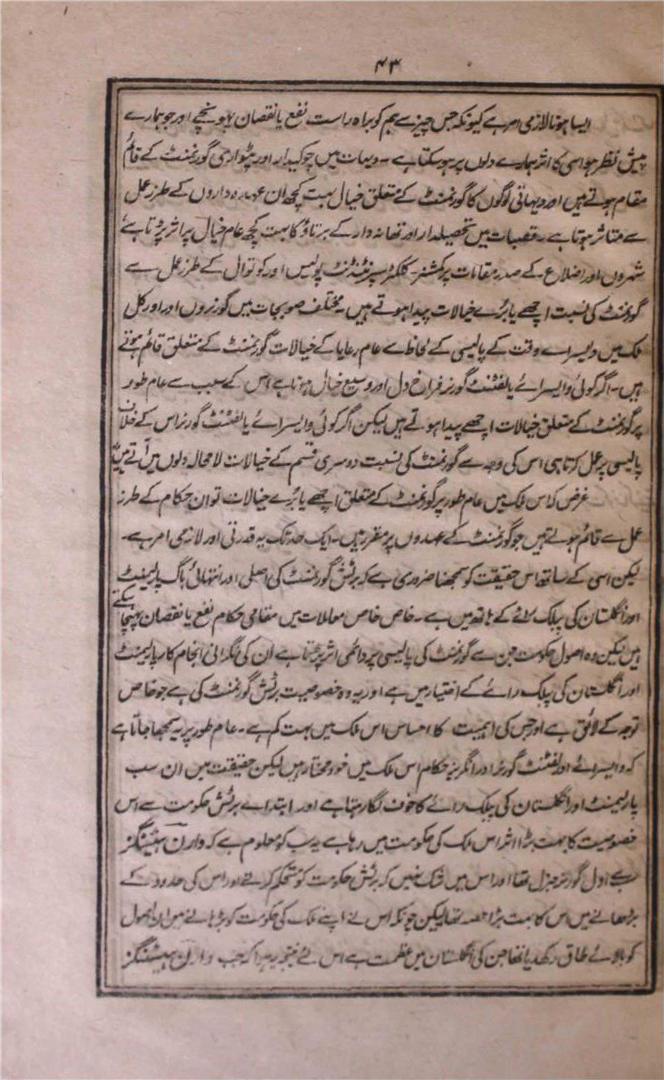 ۴۳
ایسا ہونا لازمی امر ہے کیونکہ جس چیز سے ہم کو براہ راست نفع یا نقصان پہونچے اور جو ہمارے
پیش نظر ہو اسی کا اثر ہمارے دلوں پر ہو سکتا ہے۔ دیہات میں چوکیدار اور پٹواری گورنمنٹ کے قائم
مقام ہوتے ہیں اور دیہاتی لوگوں کا گورنمنٹ کے متعلق خیال بہت کچھ ان عہدہ داروں کے طرز عمل
سے متاثر ہوتا ہے۔ قصبات میں تحصیلدار اور تھانہ دار کے برتاؤ کا بہت کچھ عام خیال پر اثر پڑتا ہے
شہروں اور اضلاع کے صدر مقامات پر کمشنر۔ کلکٹر سپرنٹنڈنٹ پولیس اور کوتوال کے طرز عمل سے
گورنمنٹ کی نسبت اچھے یا بُرے خیالات پیدا ہوتے ہیں۔ مختلف صوبجات میں گورنروں اور اور کل
ملک میں وایسراے وقت کے پالیسی کے لحاظ سے عام رعایا کے خیالات گورنمنٹ کے متعلق قائم ہوتے
ہیں۔ اگر کوئی وایسراے یا لفٹنٹ گورنر فراخ دل اور وسیع خیال ہوتا ہے اس کے سبب سے عام طور
پر گورنمنٹ کے متعلق خیالات اچھے پیدا ہوتے ہیں لیکن اگر کوئی وایسراے یا لفٹنٹ گورنر اس کے خلاف
پالیسی پر عمل کرتا ہی اس کی وجہ سے گورنمنٹ کی نسبت دوسری قسم کے خیالات لامحالہ دلوں میں آتے ہیں
غرض کہ اس ملک میں عام طور پر گورنمنٹ کے متعلق اچھے یا بُرے خیالات تو ان حکام کے طرز
عمل سے قائم ہوتے ہیں جو گورنمنٹ کے عہدوں پر مقرر ہیں۔ ایک حد تک یہ قدرتی اور لازمی امر ہے۔
لیکن اسی کے ساتھ اس حقیقت کو سمجھنا ضروری ہے کہ برٹش گورنمنٹ کی اصلی اور انتہائی باگ پارلیمنٹ
اور انگلستان کی پبلک رائے کے ہاتھ میں ہے۔ خاص خاص معاملات میں مقامی حکام نفع یا نقصان پہنچا سکتے
ہیں لیکن وہ اصول حکومت جن سے گورنمنٹ کی پالیسی پر دائمی اثر پڑتا ہے ان کی نگرانی انجام کار پارلیمنٹ
اور انگلستان کی پبلک رائے کے اختیار میں ہے اور یہ وہ خصوصیت برٹش گورنمنٹ کی ہے جو خاص
توجہ کے لائق ہے اور جس کی اہمیت کا احساس اس ملک میں بہت کم ہے۔ عام طور پر یہ سمجھا جاتا ہے
کہ وایسراے اور لفٹنٹ گورنر اور انگریز حکام اس ملک میں خود مختار ہیں لیکن حقیقت میں ان سب
پارلیمنٹ اور انگلستان کی پبلک رائے کا خوف لگا رہتا ہے اور ابتداے برٹش حکومت سے اس
خصوصیت کا بہت بڑا اثر اس ملک کی حکومت میں رہا ہے یہ سب کو معلوم ہے کہ وارن ہسٹنگز
سب سے اول گورنر جنرل تھا اور اس میں شک نہیں کہ برٹش حکومت کو مستحکم کرنے اور اس کی حدود کے
بڑھانے میں اس کا بہت بڑا حصہ تھا لیکن چونکہ اس نے اپنے ملک کی حکومت کو بڑھانے میں ان اصول
کو بالائے طاق رکھدیا تھا جن کی انگلستان میں عظمت ہے اس لئے نتیجہ یہ ہوا کہ جب وارن ہیسٹنگز